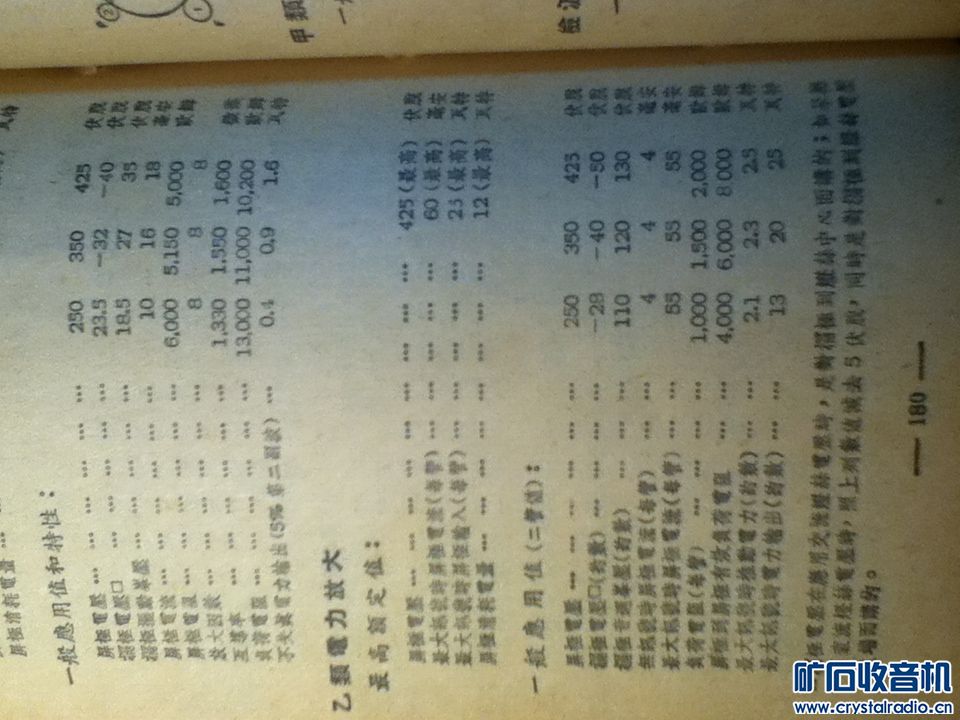 甲類
一般
檢波
一
瓦特
屏極消耗電量 ...
一般應用值和特性：
屏極電壓 ... ... ... ... 250 350 425 伏脫
柵極電壓□ ... ... ... ... 23.5 -32 -40 伏脫
柵極振動峯壓 ... ... ... 18.5 27 35 伏脫
屏極電流 ... ... ... ... 10 16 18 毫安
屏極電阻 ... ... ... ... 6,000 5,150 5,000 歐姆
放大因數 ... ... ... ... 8 8 8
互導率 ... ... ... ... 1,330 1,550 1,600 微姆
負荷電阻 ... ... ... ... 13,000 11,000 10,200 歐姆
不失真電力輸出(5%第二副波) ... 0.4 0.9 1.6 瓦特
乙類電力放大
最高額定值：
屏極電壓 ... ... ... ... ... ... 425(最高) 伏脫
最大訊號時屏極電流(每管) ... ... ... 60(最高) 毫安
最大訊號時屏極輸入(每管) ... ... ... 25(最高) 瓦特
屏極消耗電量 ... ... ... ... ... 12(最高) 瓦特
一般應用值(二管值)：
屏極電壓 ... ... ... ... 250 350 425 伏脫
柵極電壓□(約數) ... ... ... -28 -40 -50 伏脫
柵極音週峯壓(約數) ... ... 110 120 130 伏脫
無訊號時屏極電流(每管) ... ... 4 4 4 毫安
最大訊號時屏極電流(每管) ... ... 55 55 55 毫安
負荷電阻(每管) ... ... ... 1,000 1,500 2,000 歐姆
屏極到屏極有效負荷電阻 ... ... 4,000 6,000 8,000 歐姆
最大訊號時推動電力(約數) ... ... 2.1 2.3 2.5 瓦特
最大訊號時電力輸出(約數) ... ... 13 20 25 瓦特
極電壓在應用交流燈絲電壓時，是對柵極到燈絲中心而講的；如采用
直流燈絲電壓時，照上列數值減去5伏脫，同時是對柵極到燈絲電壓
端而講的。
— 180 —
矿石收音机
www.crystalradio.cn